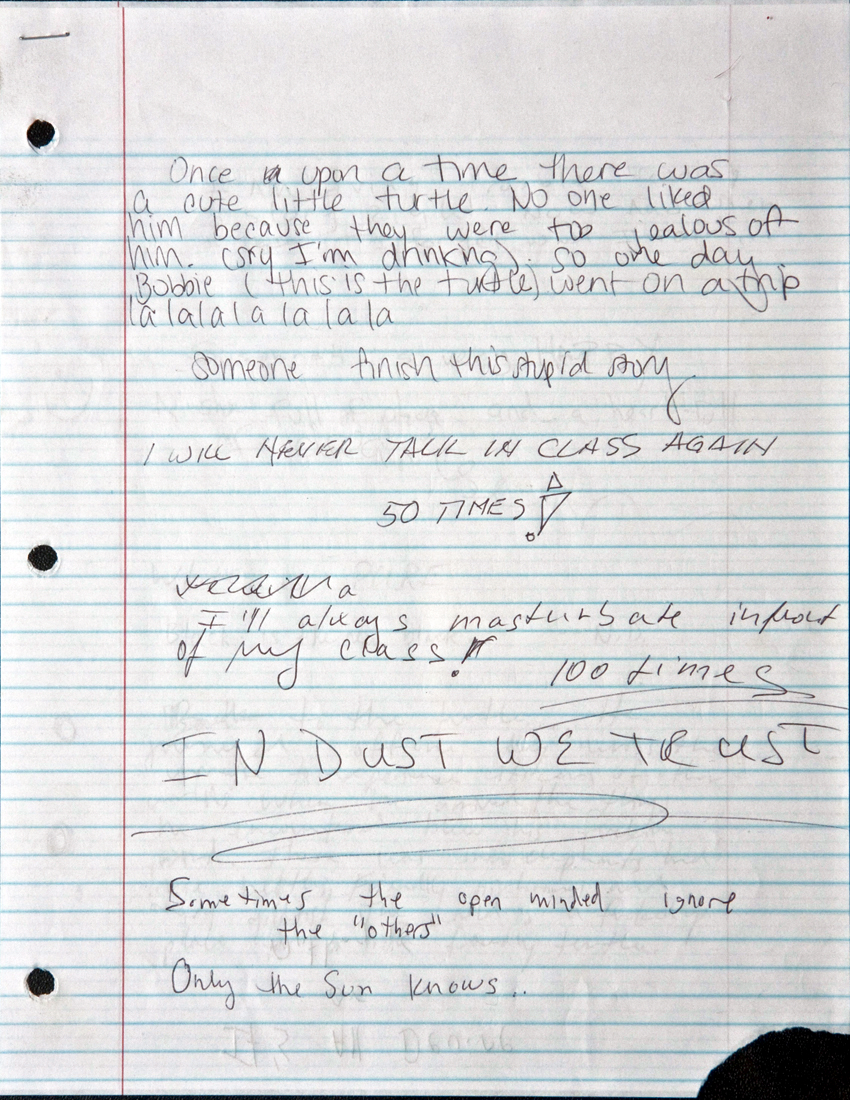 Once upon a time there was
a cute little turtle. No one liked
him because they were too jealous of
him. (sry I'm drinking). so one day
Bobbie (this is the turtle) went on a trip
la la la la la la la
someone finish this stupid story
I WILL NEVER TALK IN CLASS AGAIN
50 TIMES!
I'll always masturbate infront
of my class!
100 times
IN DUST WE TRUST
Sometimes the open minded ignore
the "others"
Only the Sun knows..